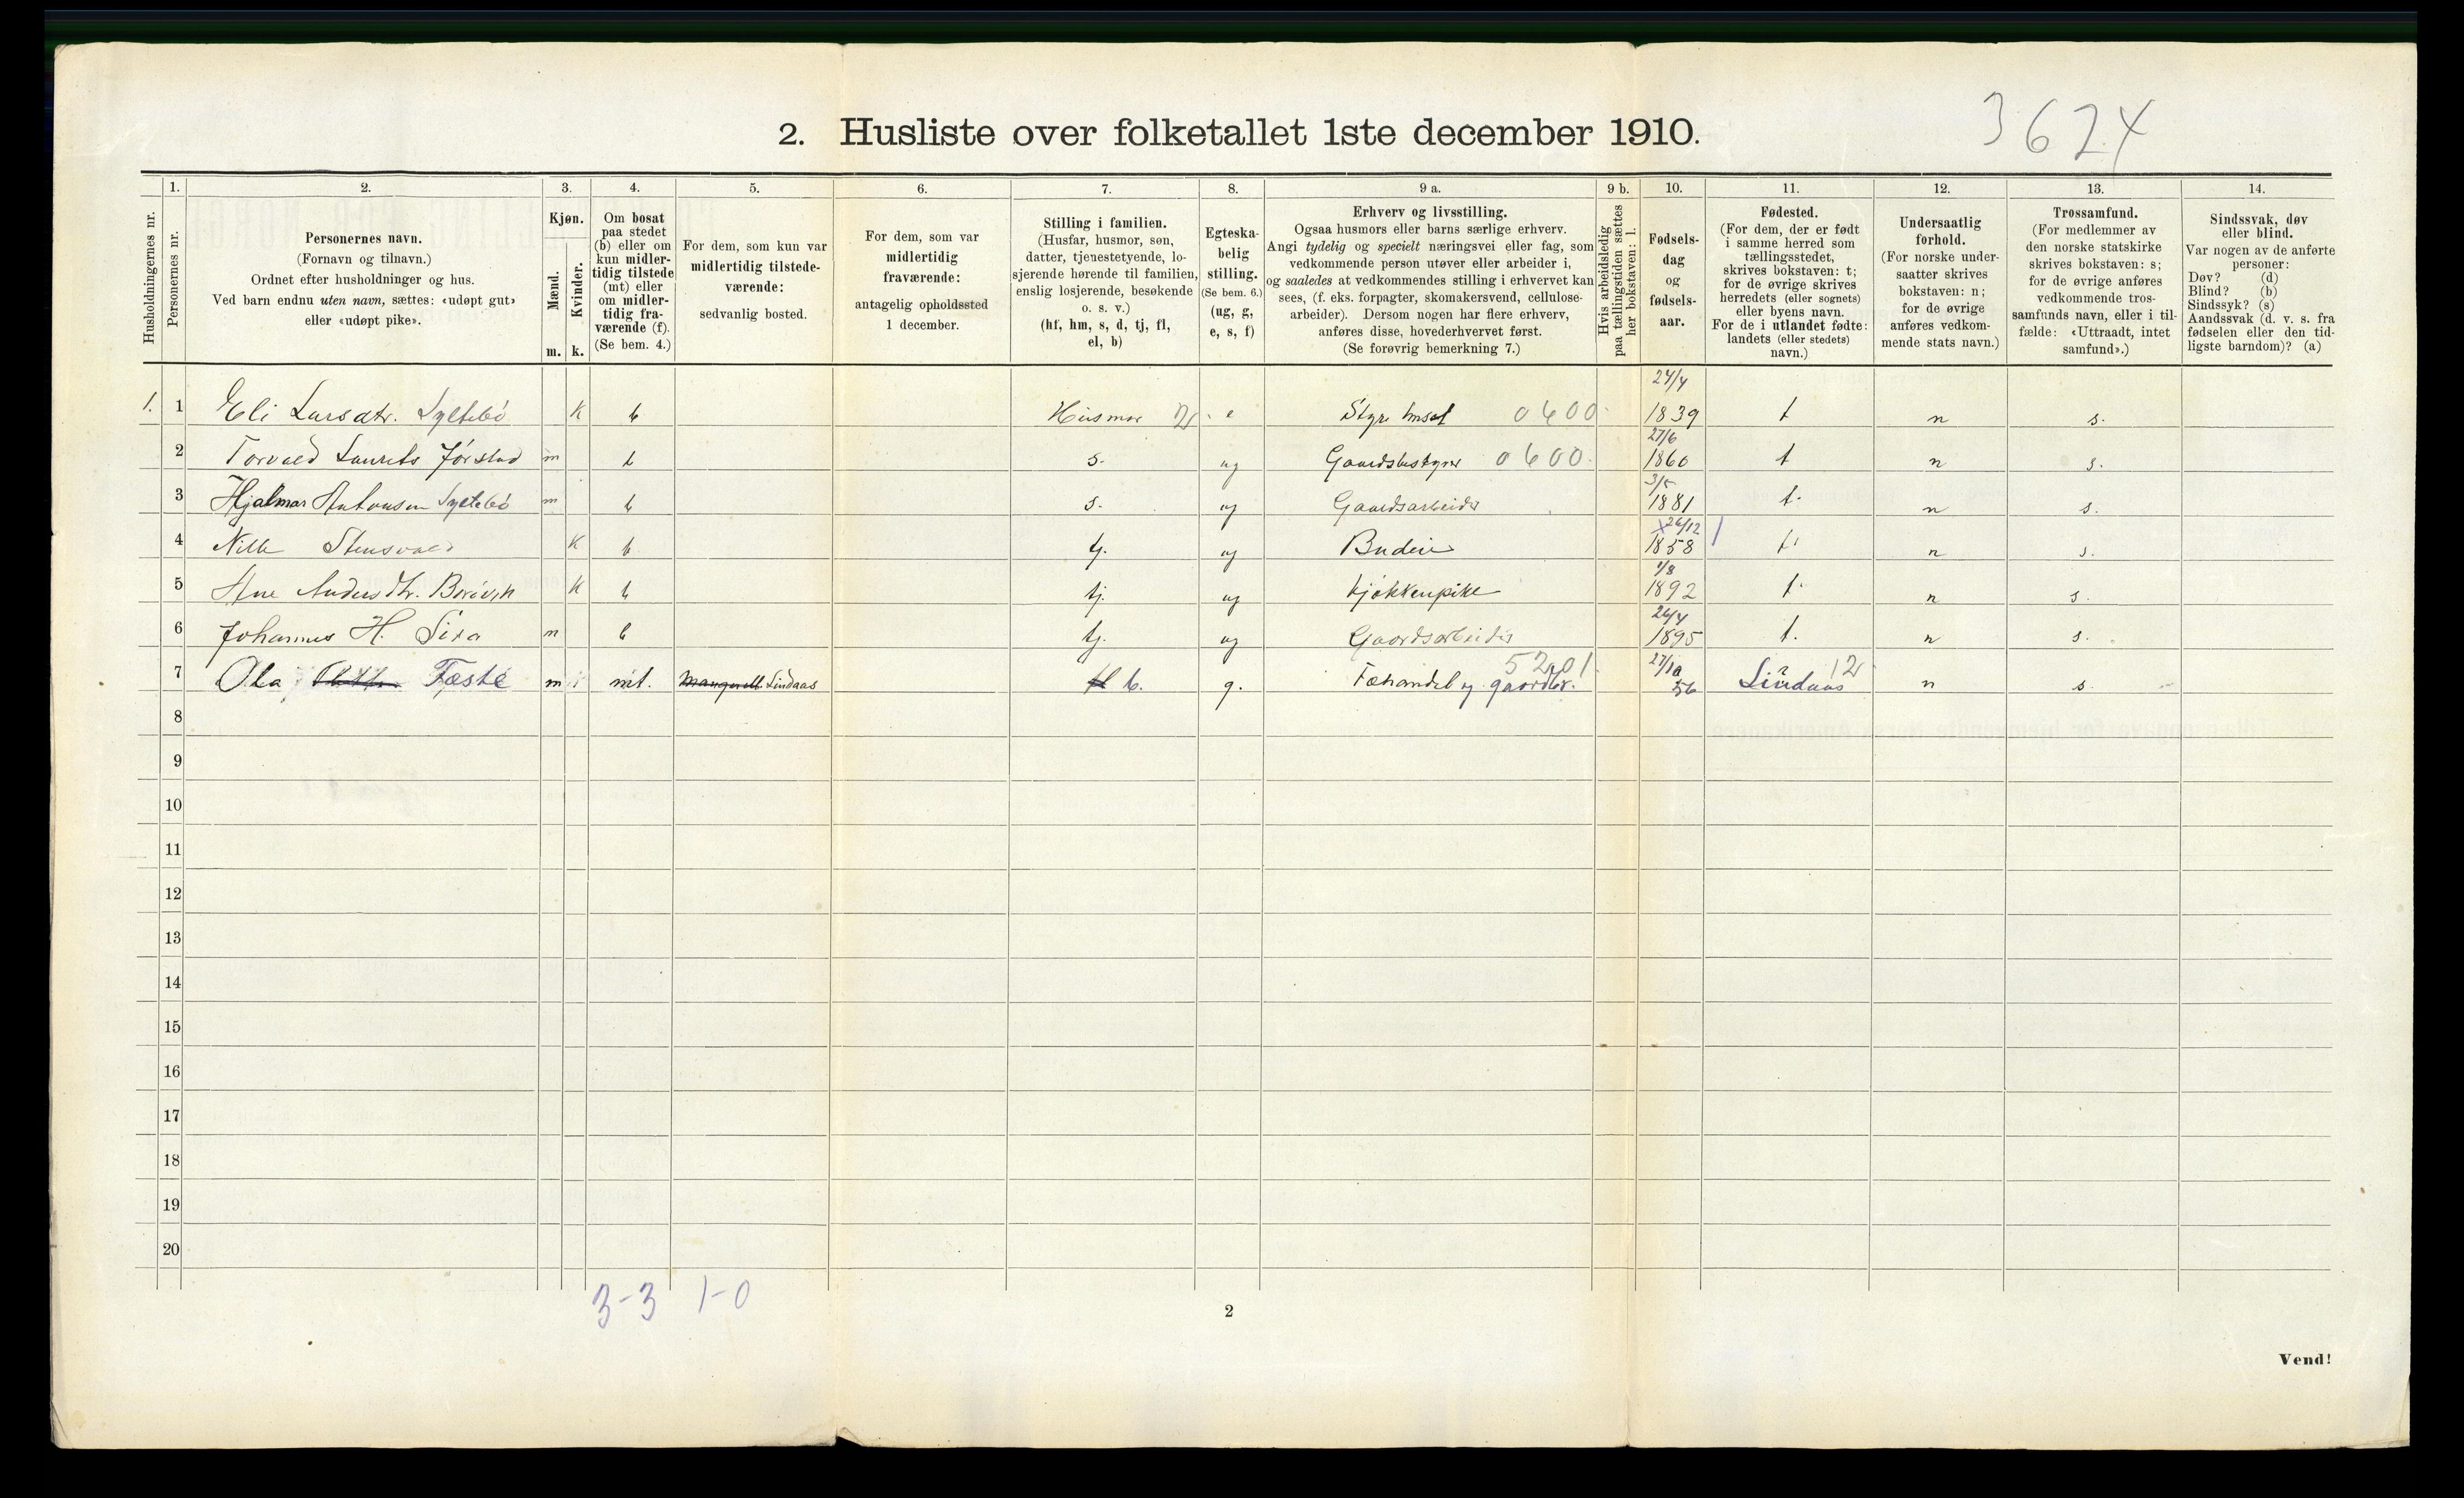 3624
2. Husliste over folketallet 1ste december 1910.
Husholdningernes nr.
1.
Personernes nr.
2.
Personernes navn.
(Fornavn og tilnavn.)
Ordnet efter husholdninger og hus.
Ved barn endnu uten navn, sættes: «udøpt gut»
eller «udøpt pike».
3.
Kjøn.
Mænd.
Kvinder.
m. k.
4.
Om bosat
paa stedet
(b) eller om
kun midler-
tidig tilstede
(mt) eller
om midler-
tidig fra-
værende (f).
(Se bem. 4.)
5.
For dem, som kun var
midlertidig tilstede-
værende:
sedvanlig bosted.
6.
For dem, som var
midlertidig
fraværende:
antagelig opholdssted
1 december.
7.
Stilling i familien.
(Husfar, husmor, søn,
datter, tjenestetyende, lo-
sjerende hørende til familien,
enslig losjerende, besøkende
o. s. v.)
(hf, hm, s, d, tj, fl,
el, b)
8.
Egteska-
belig
stilling.
(Se bem. 6.)
(ug, g,
e, s, f)
9 a.
Erhverv og livsstilling.
Ogsaa husmors eller barns særlige erhverv.
Angi tydelig og specielt næringsvei eller fag, som
vedkommende person utøver eller arbeider i,
og saaledes at vedkommendes stilling i erhvervet kan
sees, (f. eks. forpagter, skomakersvend, cellulose-
arbeider). Dersom nogen har flere erhverv,
anføres disse, hovederhvervet først.
(Se forøvrig bemerkning 7.)
9 b.
Hvis arbeidsledig
paa tællingstiden sættes
her bokstaven: l.
10.
Fødsels-
dag
og
fødsels-
aar.
11.
Fødested.
(For dem, der er født
i samme herred som
tællingsstedet,
skrives bokstaven: t;
for de øvrige skrives
herredets (eller sognets)
eller byens navn.
For de i utlandet fødte:
landets (eller stedets)
navn.)
12.
Undersaatlig
forhold.
(For norske under-
saatter skrives
bokstaven: n;
for de øvrige
anføres vedkom-
mende stats navn.)
13.
Trossamfund.
(For medlemmer av
den norske statskirke
skrives bokstaven: s;
for de øvrige anføres
vedkommende tros-
samfunds navn, eller i til-
fælde: «Uttraadt, intet
samfund».)
14.
Sindssvak, døv
eller blind.
Var nogen av de anførte
personer:
Døv? (d)
Blind? (b)
Sindssyk? (s)
Aandssvak (d. v. s. fra
fødselen eller den tid-
ligste barndom)? (a)
1. 1 Eli Larsdtr. Syltebö K b Husmor e Styre huset 0600 24/4 1839 t n s.
2 Torvald Laurits Jörstad m b s. ug Gaardsbestyrer 0600 27/6 1860 t n s.
3 Hjalmar Antonsen Syltebö m b s. ug Gaardsarbeider 3/5 1881 t. n s.
4 Stensvold K b tj. ug Budeie 26/12 1858 t. n s.
5 Ane Andersdtr. K b tj. ug kjökkenpike 1/8 1892 t. n s.
6 Johannes H. m b tj. ug Gaardsarbeider 26/4 1895 t. n s.
7 Ola Fæste m mt. Lindaas b. g. Fæhandel og gaardbr. 5201 27/10 56 Lindaas 12 n s
8
9
10
11
12
13
14
15
16
17
18
19
20
3-3 1-0
2
Vend!